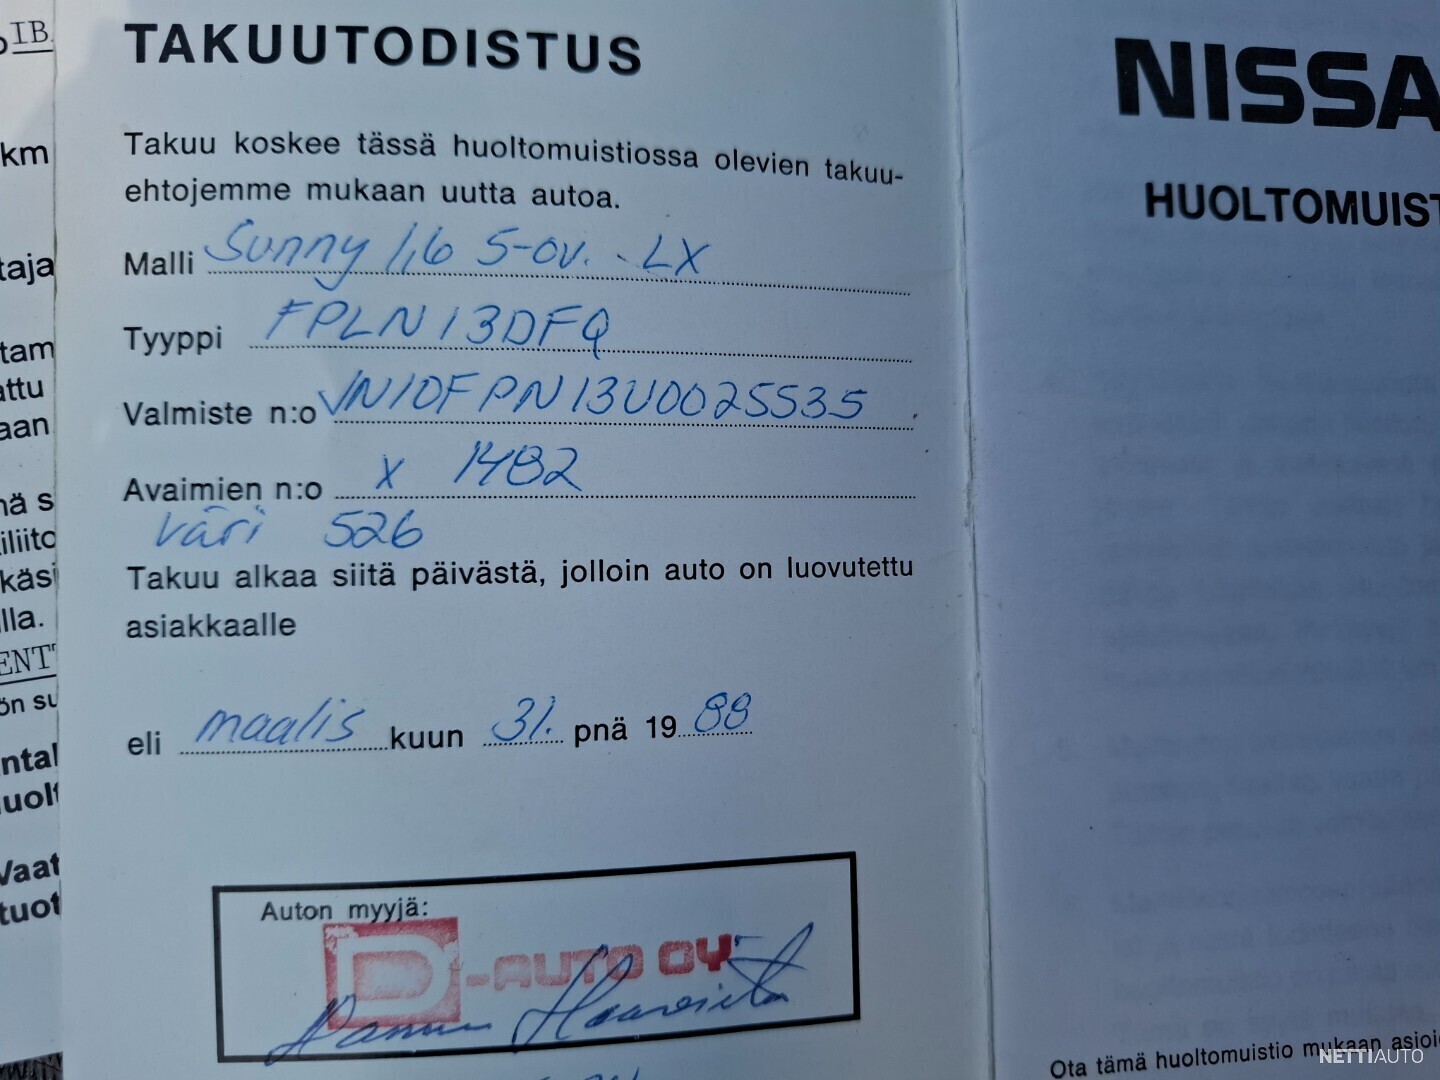 IB
km
taja
tam
attu
aan
nä s
iliito
käsi
lla.
ENT
ön su
ntal
uolt
Vaat
tuot
TAKUUTODISTUS
Takuu koskee tässä huoltomuistiossa olevien takuu-
ehtojemme mukaan uutta autoa.
Malli Sunny 1,6 5-ov. LX
Tyyppi FPLN13DFQ
Valmiste n:o JN10FPN13U0025535
Avaimien n:o x 1482
Väri 526
Takuu alkaa siitä päivästä, jolloin auto on luovutettu
asiakkaalle
eli maalis kuun 31. pnä 19 88
Auton myyjä:
D-AUTO OY
NISSA
HUOLTOMUIST
Ota tämä huoltomuistio mukaan asioi
NETTIAUTO